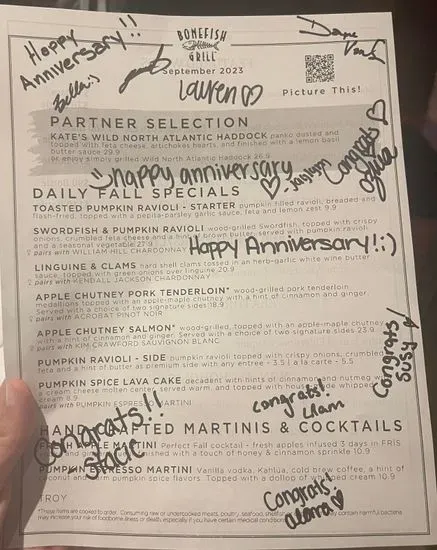 Happy
Anniversary!!
Bella :)
BONEFISH
GRILL
September 2023
Lauren ♡
Picture This!
PARTNER SELECTION
KATE'S WILD NORTH ATLANTIC HADDOCK panko dusted and
topped with feta cheese, artichokes hearts, and finished with a lemon basil
butter sauce 29.9
or enjoy simply grilled Wild North Atlantic Haddock 26.9
happy anniversary
Congrats
DAILY FALL SPECIALS
TOASTED PUMPKIN RAVIOLI - STARTER pumpkin filled ravioli, breaded and
flash-fried, topped with a pepita-parsley garlic sauce, feta and lemon zest 9.9
SWORDFISH & PUMPKIN RAVIOLI wood-grilled Swordfish, topped with crispy
onions, crumbled feta cheese and a hint of brown butter, served with pumpkin ravioli
and a seasonal vegetable 27.9
pairs with WILLIAM HILL CHARDONNAY
Happy Anniversary! :)
LINGUINE & CLAMS hard shell clams tossed in an herb-garlic white wine butter
sauce, topped with green onions over linguine 20.9
pairs with KENDALL JACKSON CHARDONNAY
APPLE CHUTNEY PORK TENDERLOIN* wood-grilled pork tenderloin
medallions topped with an apple-maple chutney with a hint of cinnamon and ginger.
Served with a choice of two signature sides 18.9
pairs with ACROBAT PINOT NOIR
APPLE CHUTNEY SALMON* wood-grilled, topped with an apple-maple chutney
with a hint of cinnamon and ginger. Served with a choice of two signature sides 23.9
pairs with KIM CRAWFORD SAUVIGNON BLANC
Congrats
Susy
PUMPKIN RAVIOLI - SIDE pumpkin ravioli topped with crispy onions, crumbled
feta and a hint of butter as premium side with any entree - 3.5 | a la carte - 5.5
PUMPKIN SPICE LAVA CAKE decadent with hints of cinnamon and nutmeg with
a cream cheese molten center, served warm, and topped with house made whipped
cream 8.9
pairs with PUMPKIN ESPRESSO MARTINI
Congrats!
Liam
Congrats!!
HANDCRAFTED MARTINIS & COCKTAILS
FRESH APPLE MARTINI Perfect Fall cocktail - fresh apples infused 3 days in FRÏS
and ginger, finished with a touch of honey & cinnamon sprinkle 10.9
PUMPKIN ESPRESSO MARTINI Vanilla vodka, Kahlua, cold brew coffee, a hint of
coconut and warm pumpkin spice flavors. Topped with a dollop of whipped cream 10.9
Congrats!
TROY
*These items are cooked to order. Consuming raw or undercooked meats, poultry, seafood, shellfish
may increase your risk of foodborne illness or death, especially if you have certain medical conditions